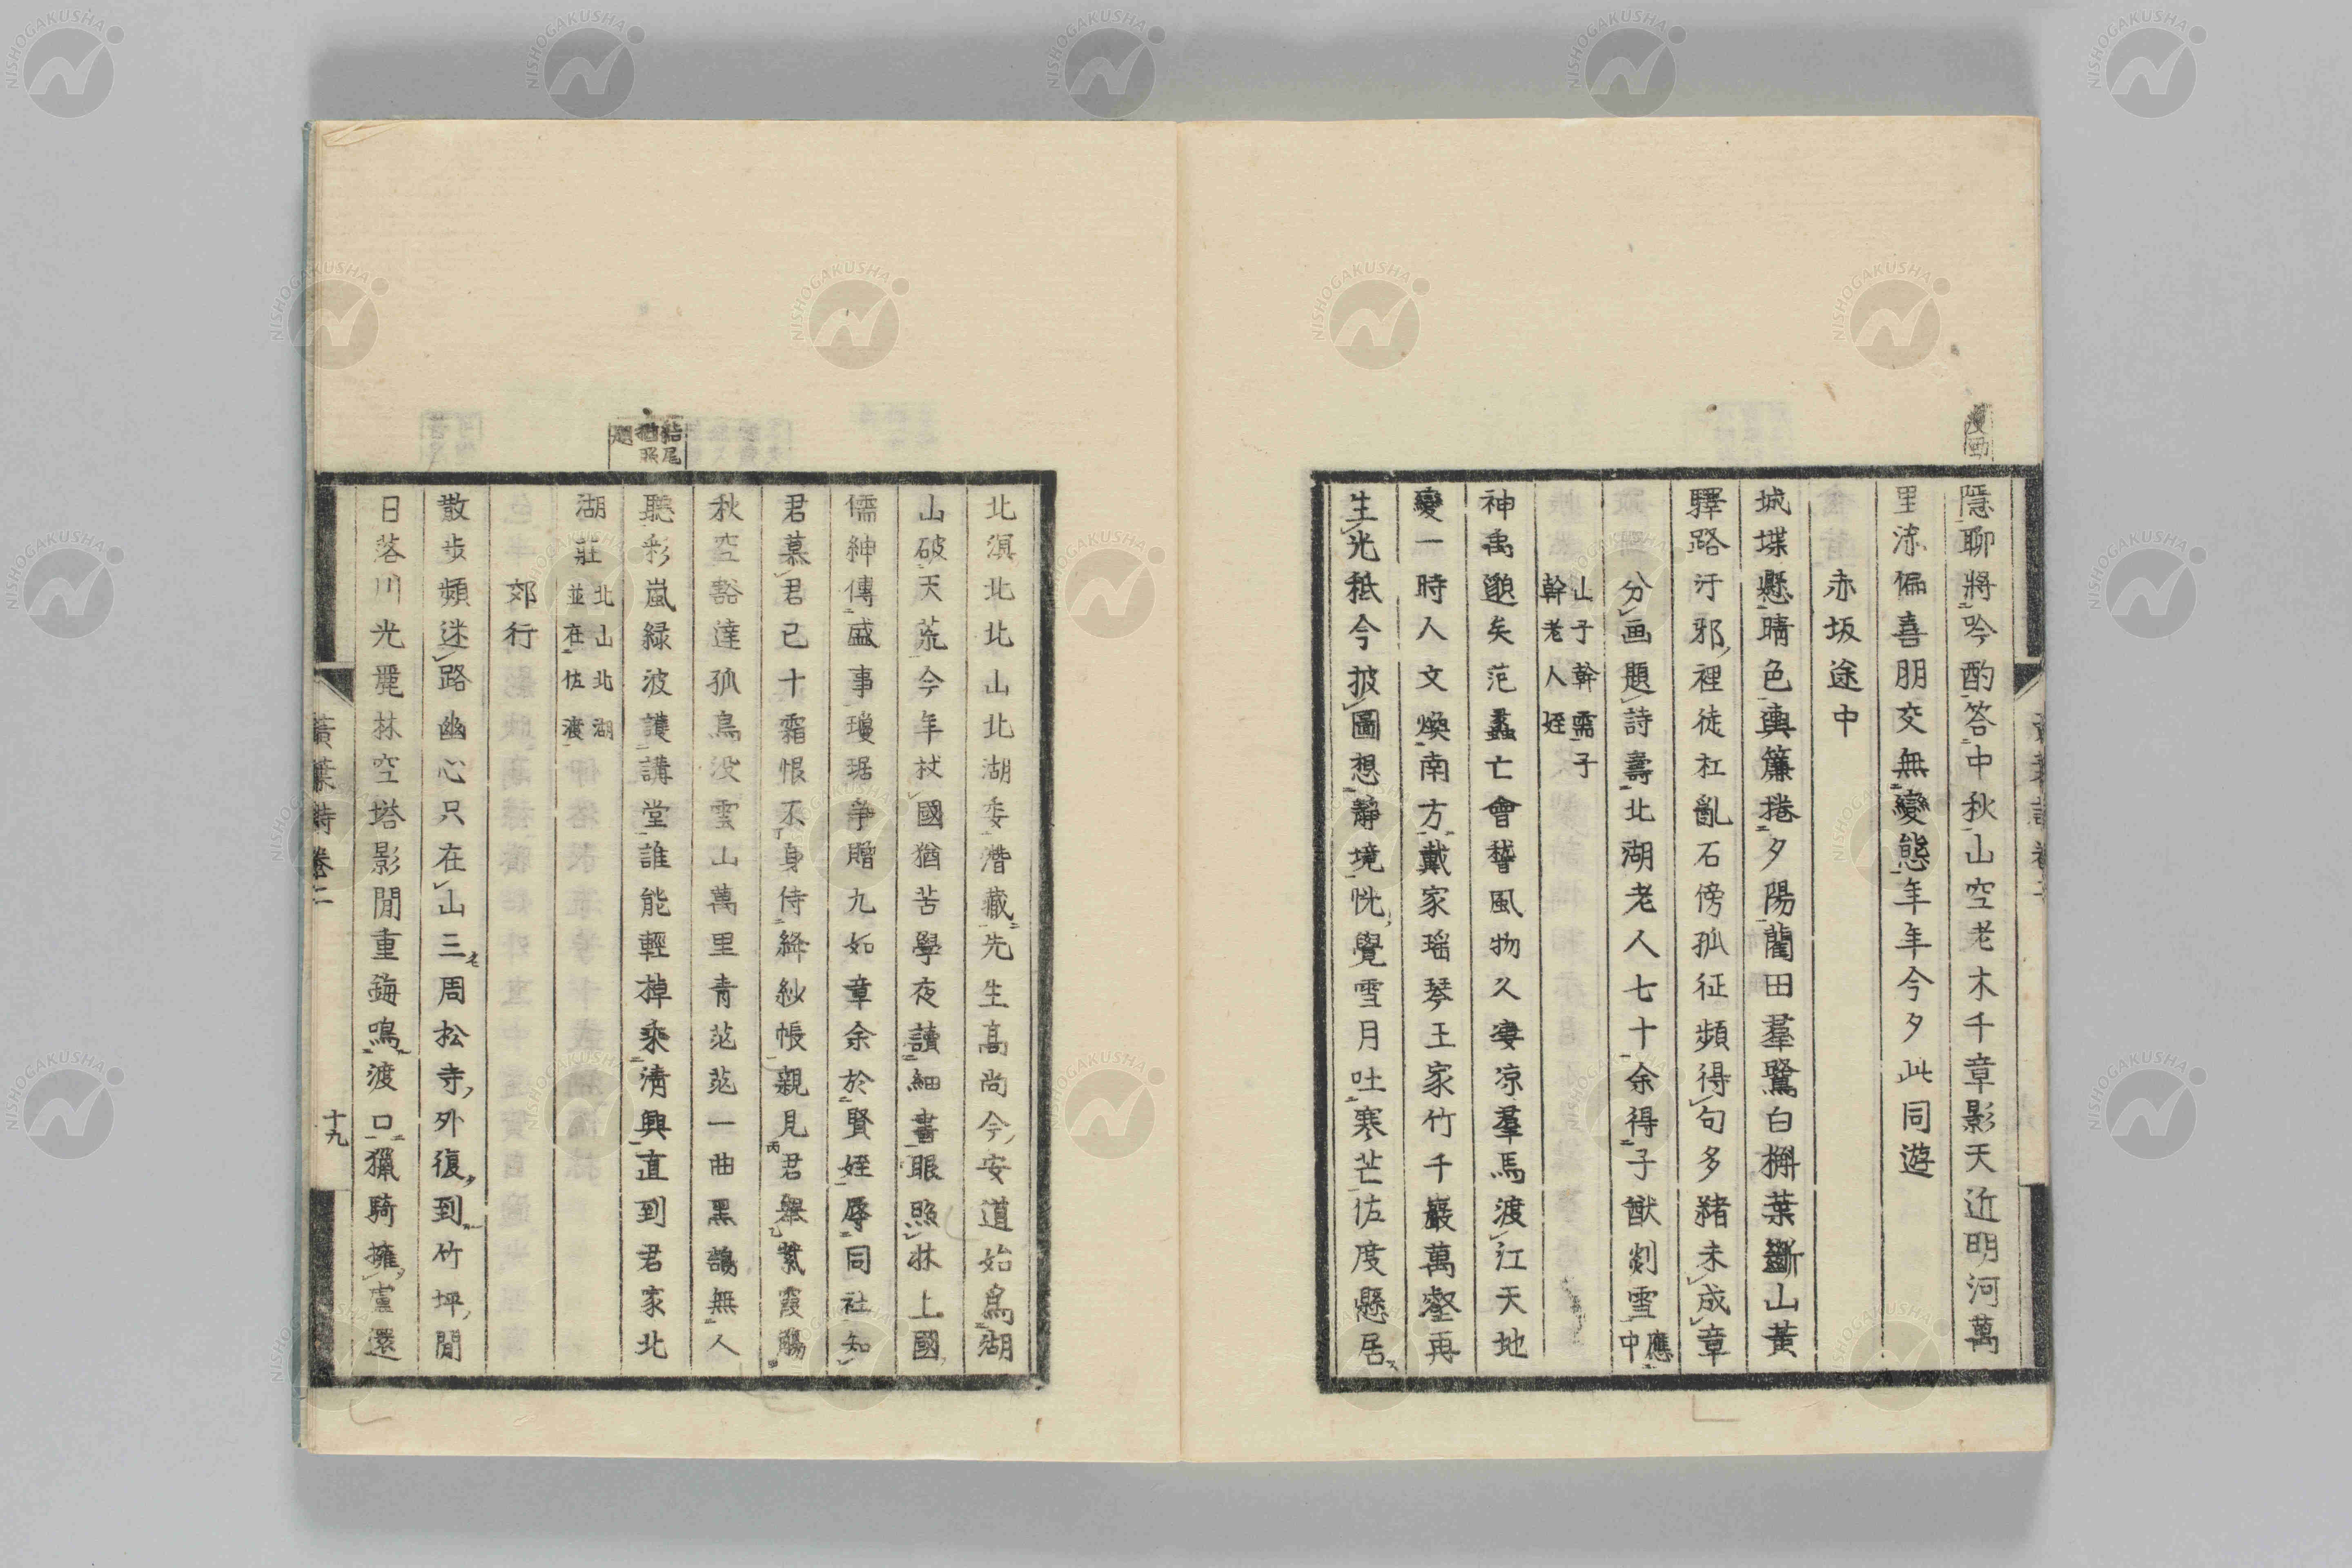 隱聊將吟酌答中秋山空老木千章影天近明河萬
里流偏喜朋交無變態年年今夕此同遊
赤坂途中
城堞懸晴色輿簾捲夕陽藺田羣鷺白槲葉斷山黃
驛路汙邪裡徒杠亂石傍孤征頻得句多緒未成章
分画題詩壽北湖老人七十余得子猷剡雪應中
山子幹需子
幹老人姪
神禹邈矣范蠡亡會稽風物久凄凉羣馬渡江天地
變一時人文煥南方戴家瑶琴王家竹千巖萬壑再
生光秖今披圖想靜境恍覺雪月吐寒芒佐度懸居
北溟北北山北湖委潛藏先生高尚今安道始為湖
山破天荒今年杖國猶苦學夜讀細書眼照牀上國
儒紳傳盛事瓊琚爭贈九如章余於賢姪辱同社知
君慕君已十霜恨不身侍絳紗帳親見君舉紫霞觴
秋空豁達孤鳥没雲山萬里青茫茫一曲黑鶴無人
聽彩嵐緑波護講堂誰能輕棹乘淸興直到君家北
湖莊
北山北湖
並在佐渡
郊行
散步頻迷路幽心只在山三周松寺外復到竹坪閒
日落川光麗林空塔影閒重鋂鳴渡口獵騎擁盧還
黃葉詩卷二
十九